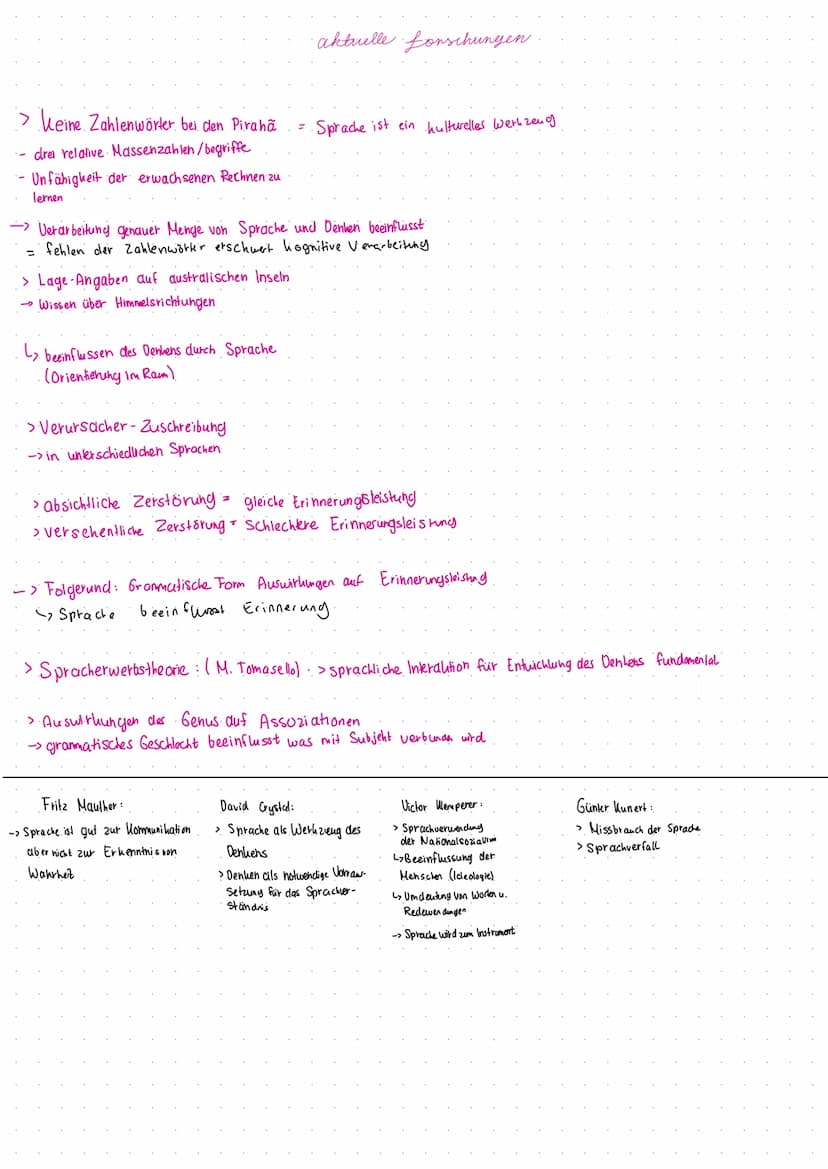 aktuelle Forschungen
> Keine Zahlenwörter bei den Pirahã = Sprache ist ein kulturelles Werkzeug
- drei relative Massenzahlen/begriffe
- Unfähigkeit der erwachsenen Rechnen zu
lernen
-> Verarbeitung genauer Menge von Sprache und Denken beeinflusst
= fehlen der Zahlenwörter erschwert kognitive Verarbeitung
> Lage-Angaben auf australischen Inseln
-> Wissen über Himmelsrichtungen
↳ beeinflussen des Denkens durch Sprache
(Orientierung im Raum)
> Verursacher-Zuschreibung
-> in unterschiedlichen Sprachen
> absichtliche Zerstörung = gleiche Erinnerungsleistung
> versehentliche Zerstörung = schlechtere Erinnerungsleistung
-> Folgerund: Grammatische Form Auswirkungen auf Erinnerungsleistung
↳ Sprache beeinflusst Erinnerung
> Spracherwerbstheorie: (M. Tomasello) · > sprachliche Interaktion für Entwicklung des Denkens fundamental
> Auswirkungen des Genus auf Assoziationen
-> grammatisches Geschlecht beeinflusst was mit Subjekt verbunden wird
Fritz Mauther:
-> Sprache ist gut zur Kommunikation
aber nicht zur Erkenntnis von
Wahrheit
David Crystal:
> Sprache als Werkzeug des
Denkens
> Denken als notwendige Voraus-
setzung für das Sprachver-
ständnis
Victor Klemperer:
> Sprachverwendung
der Nationalsozialism
↳ Beeinflussung der
Menschen (Ideologie)
↳ Umdeutung von Worten u.
Redewendungen
-> Sprache wird zum Instrument
Günter Kunert:
> Missbrauch der Sprache
> Sprachverfall